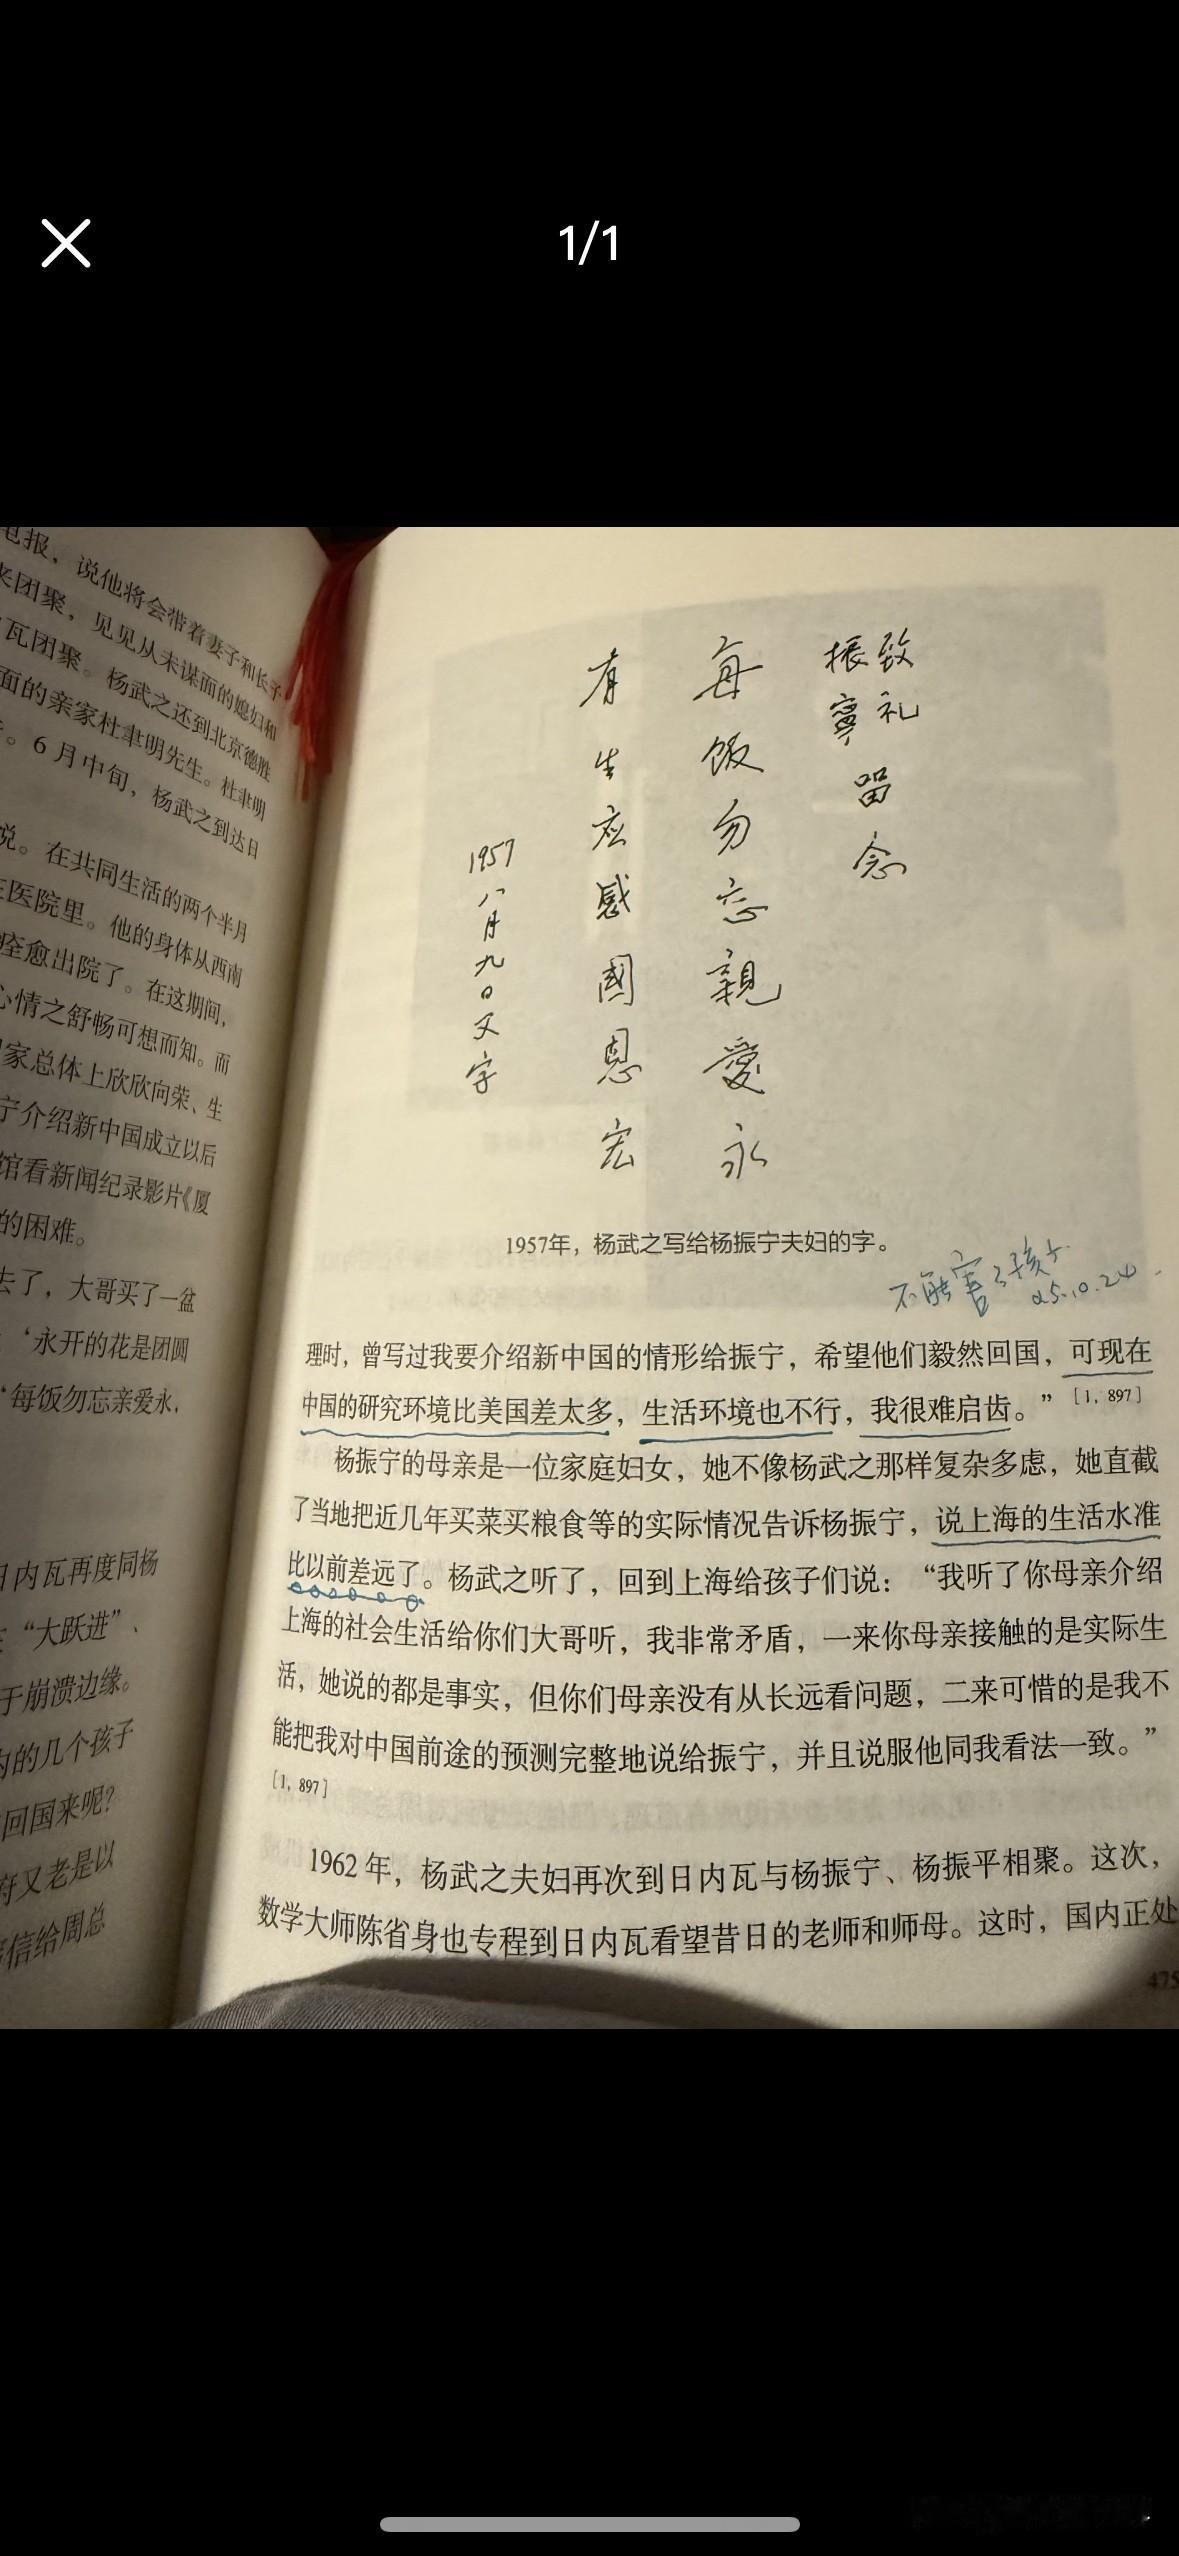 1/1
电报，说他将会带着妻子和长子
来团聚，见见从未谋面的媳妇和
瓦团聚。杨武之还到北京德胜
面的亲家杜聿明先生。杜聿明
。6月中旬，杨武之到达日
说。在共同生活的两个半月
医院里。他的身体从西南
痊愈出院了。在这期间，
心情之舒畅可想而知。而
家总体上欣欣向荣、生
宁介绍新中国成立以后
馆看新闻纪录影片《厦
的困难。
去了，大哥买了一盆
‘永开的花是团圆
‘每饭勿忘亲爱永，
日内瓦再度同杨
“大跃进”、
于崩溃边缘。
内的几个孩子
回国来呢？
府又老是以
信给周总
致礼
振寧
留念
每饭勿忘親愛永
有生应感國恩宏
1957八月九日父字
1957年，杨武之写给杨振宁夫妇的字。
不能害了孩子
25.10.24.
理时，曾写过我要介绍新中国的情形给振宁，希望他们毅然回国，可现在
中国的研究环境比美国差太多，生活环境也不行，我很难启齿。”[1, 897]
杨振宁的母亲是一位家庭妇女，她不像杨武之那样复杂多虑，她直截
了当地把近几年买菜买粮食等的实际情况告诉杨振宁，说上海的生活水准
比以前差远了。杨武之听了，回到上海给孩子们说：“我听了你母亲介绍
上海的社会生活给你们大哥听，我非常矛盾，一来你母亲接触的是实际生
活，她说的都是事实，但你们母亲没有从长远看问题，二来可惜的是我不
能把我对中国前途的预测完整地说给振宁，并且说服他同我看法一致。”
[1, 897]
1962年，杨武之夫妇再次到日内瓦与杨振宁、杨振平相聚。这次，
数学大师陈省身也专程到日内瓦看望昔日的老师和师母。这时，国内正处
475